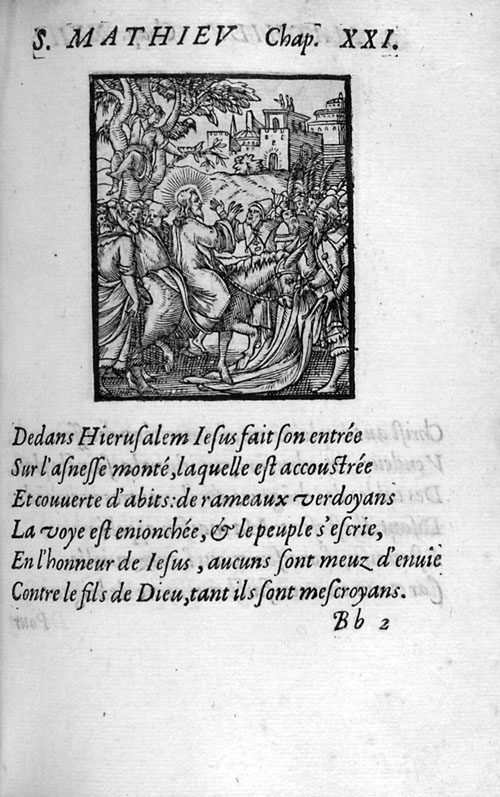 S. MATHIEV Chap. XXI.
Dedans Hierusalem Iesus fait son entrée
Sur l'asnesse monté, laquelle est accoustrée
Et couuerte d'abits: de rameaux verdoyans
La voye est enionchée, & le peuple s'escrie,
En l'honneur de Iesus, aucuns sont meuz d'enuie
Contre le fils de Dieu, tant ils sont mescroyans.
Bb 2